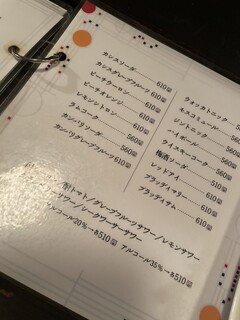 カシスソーダ 610円
カシスグレープフルーツ 610円
ピーチウーロン 610円
ピーチオレンジ 610円
レモンジントロン 610円
ラムコーク 560円
カンパリソーダ 560円
カンパリグレープフルーツ 610円
ウォッカトニック
モスコミュール
ジントニック 560円
ハイボール 560円
ウイスキーコーク 560円
梅酒ソーダ 560円
レッドアイ 510円
ブラッディマリー 610円
ブラッディサム 610円
トマト/グレープフルーツサワー/レモンサワー
サワー/シークワーサーサワー
アルコール20%→各510円 アルコール35%→各510円